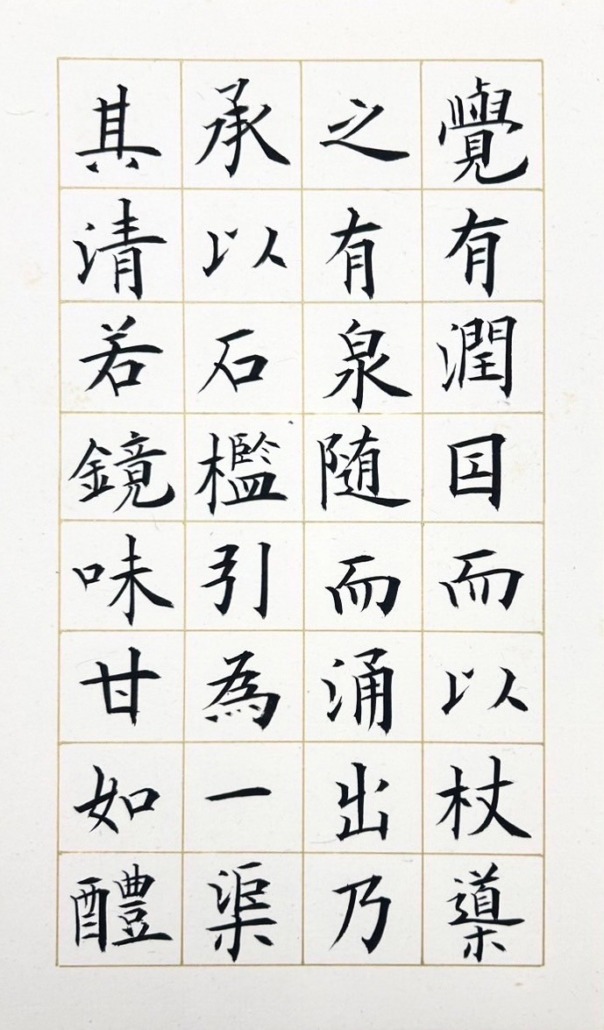 覺有潤囙而以杖導
之有泉随而涌出乃
承以石檻引為一渠
其清若鏡味甘如醴